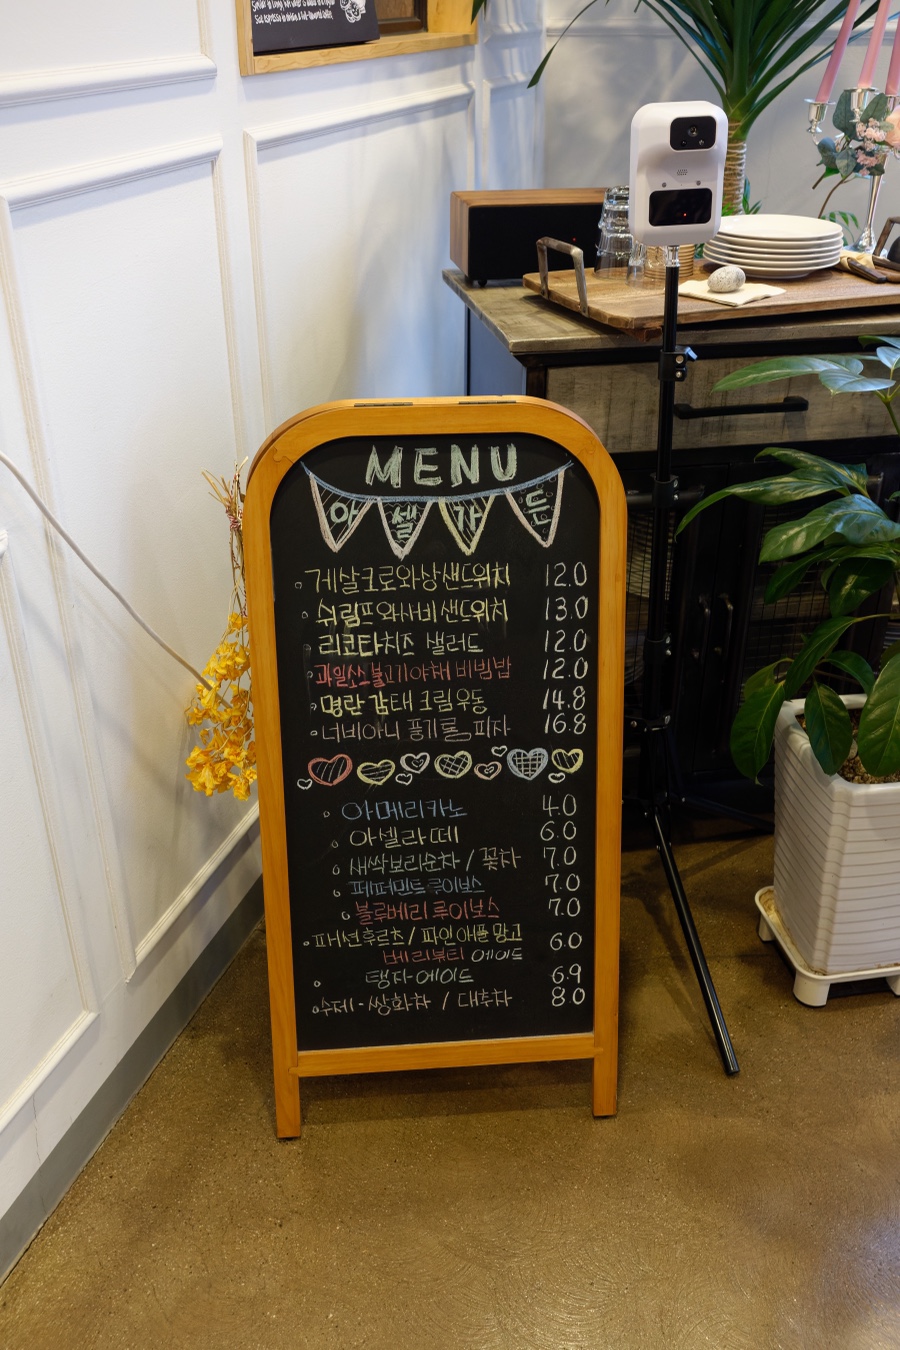 MENU
아셀가든
게살크로와상샌드위치 12.0
쉬림프와사비샌드위치 13.0
리코타치즈 샐러드 12.0
과일소스불고기야채 비빔밥 12.0
명란 감태 크림우동 14.8
너비아니 풍기룽 피자 16.8
아메리카노 4.0
아셀라떼 6.0
새싹보리순차 / 꽃차 7.0
페퍼민트 루이보스 7.0
블루베리 루이보스 7.0
패션후르츠 / 파인애플 망고 6.0
베리뷰티 에이드
탱자에이드 6.9
수제-쌍화차 / 대추차 8.0